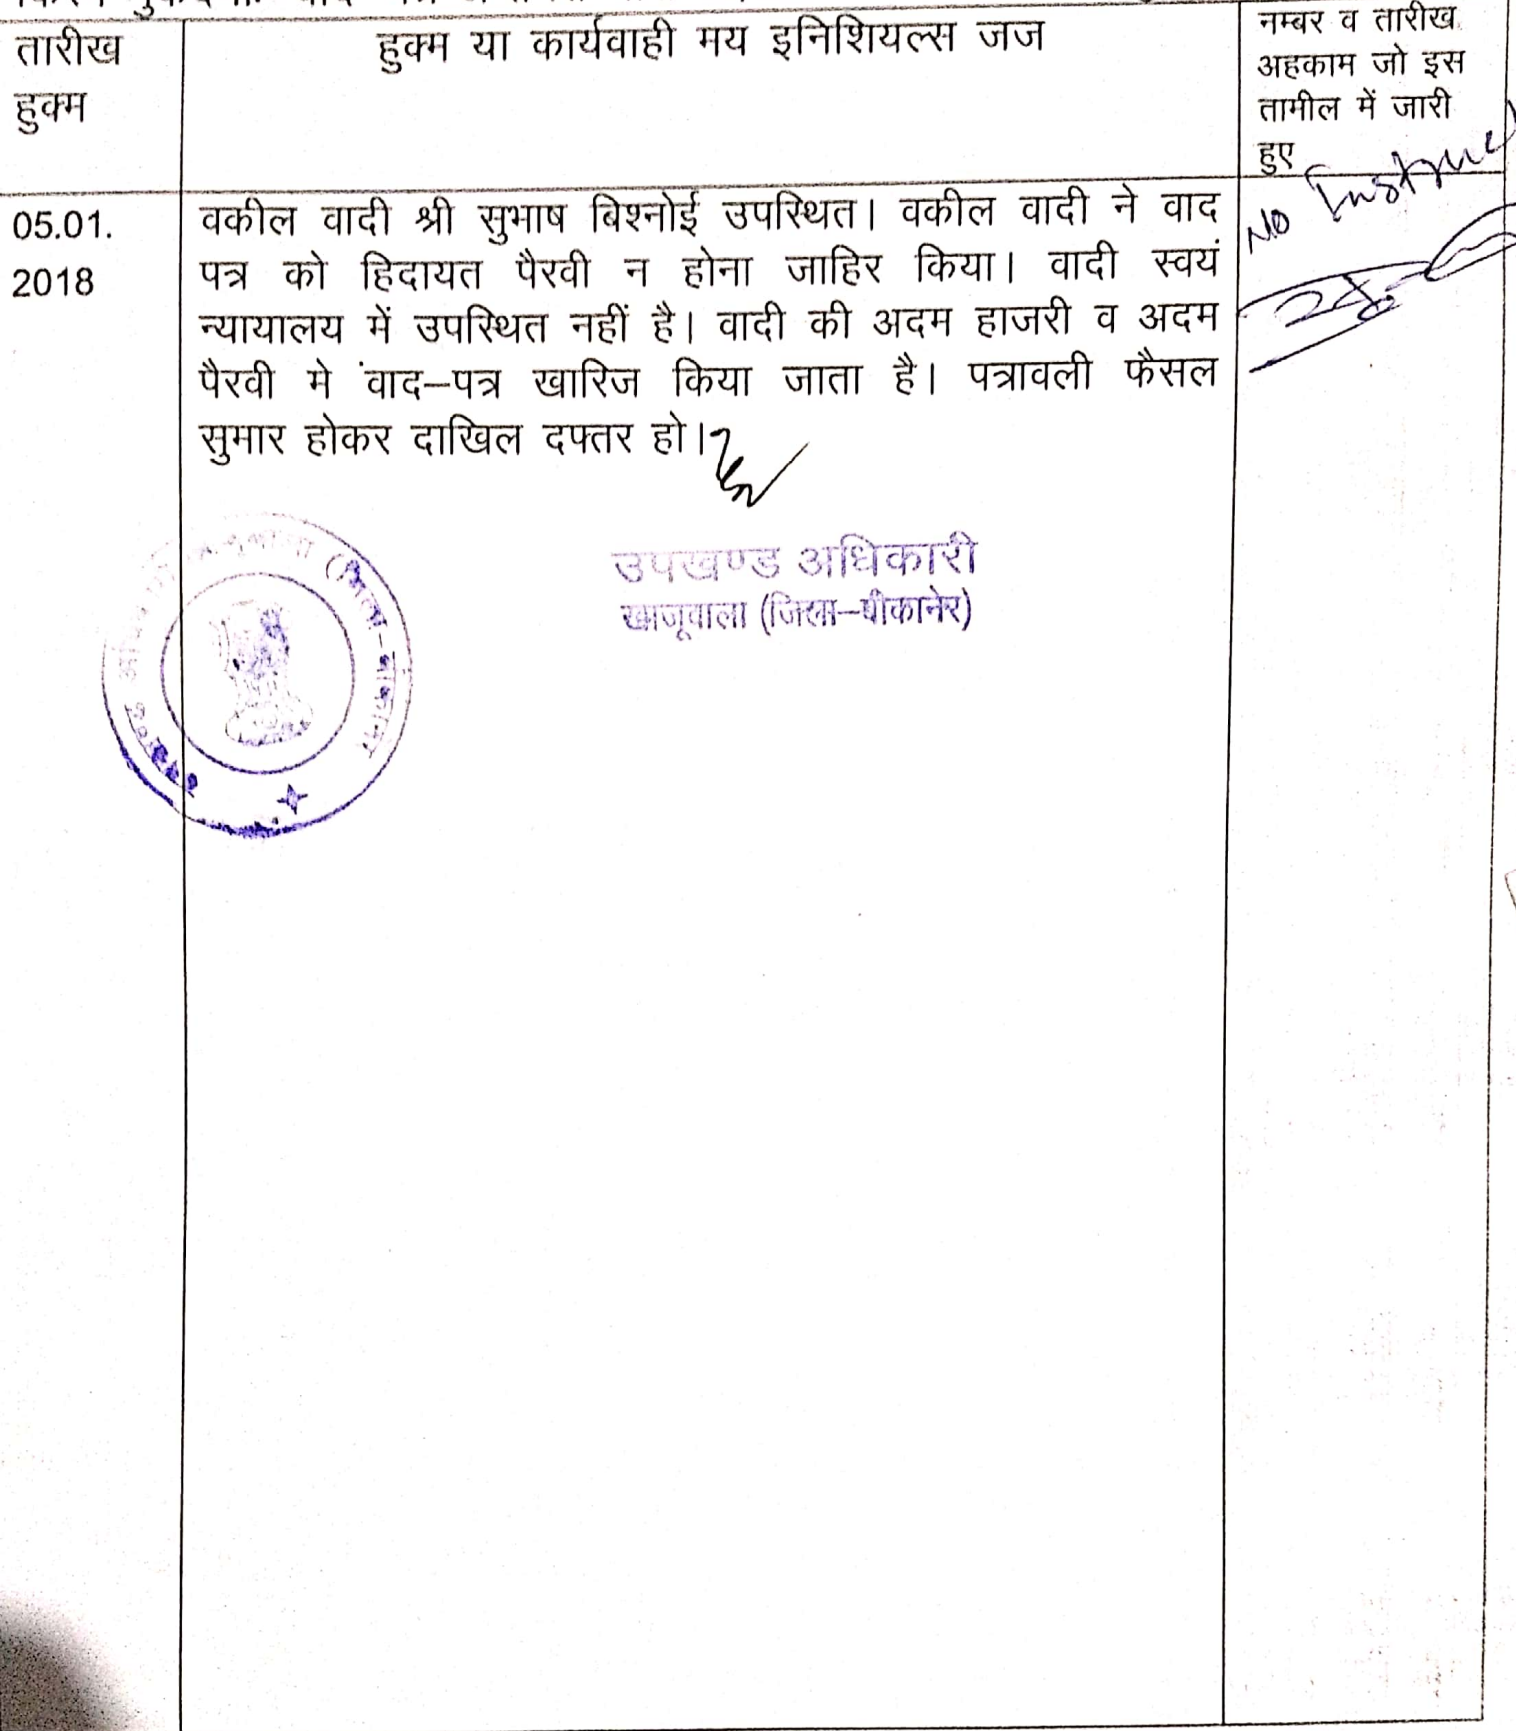 तारीख
हुक्म
हुक्म या कार्यवाही मय इनिशियल्स जज
नम्बर व तारीख
अहकाम जो इस
तामील में जारी
हुए
05.01.
2018
वकील वादी श्री सुभाष बिश्नोई उपस्थित। वकील वादी ने वाद
पत्र को हिदायत पैरवी न होना जाहिर किया। वादी स्वयं
न्यायालय में उपस्थित नहीं है। वादी की अदम हाजरी व अदम
पैरवी मे वाद–पत्र खारिज किया जाता है। पत्रावली फैसल
सुमार होकर दाखिल दफ्तर हो।
No Instruc
उपखण्ड अधिकारी
खाजूवाला (जिला–बीकानेर)